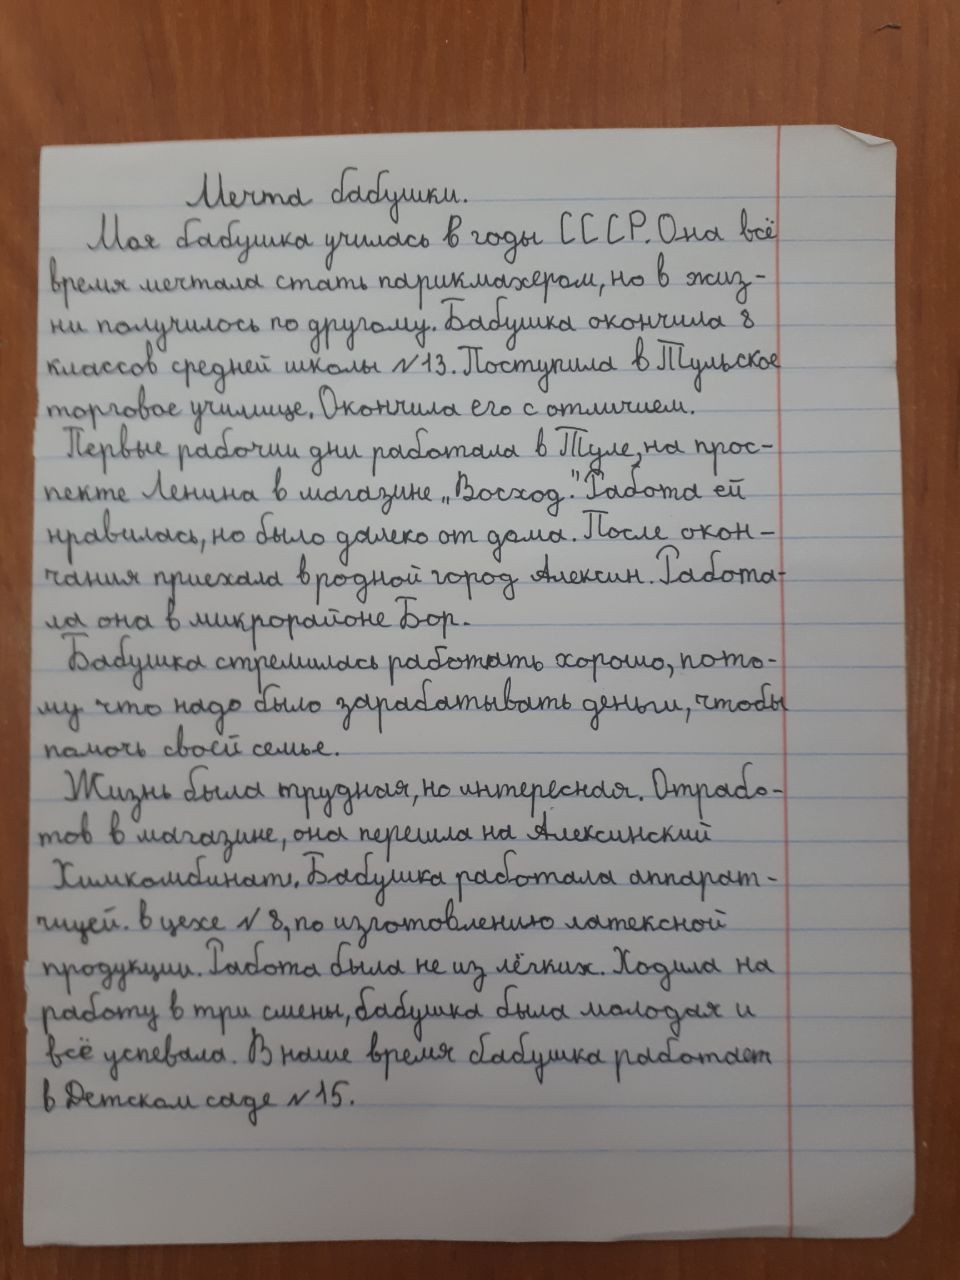 Мечта бабушки.
Моя бабушка училась в годы СССР. Она всё
время мечтала стать парикмахером, но в жиз-
ни получилось по другому. Бабушка окончила 8
классов средней школы №13. Поступила в Тульское
торговое училище. Окончила его с отличием.
Первые рабочии дни работала в Туле, на прос-
пекте Ленина в магазине „Восход". Работа ей
нравилась, но было далеко от дома. После окон-
чания приехала в родной город Алексин. Работа-
ла она в микрорайоне Бор.
Бабушка стремилась работать хорошо, пото-
му что надо было зарабатывать деньги, чтобы
помочь своей семье.
Жизнь была трудная, но интересная. Отрабо-
тов в магазине, она перешла на Алексинский
Химкомбинат. Бабушка работала аппарат-
чицей. в цехе №8, по изготовлению латексной
продукции. Работа была не из лёгких. Ходила на
работу в три смены, бабушка была молодая и
всё успевала. В наше время бабушка работает
в Детском саде №15.